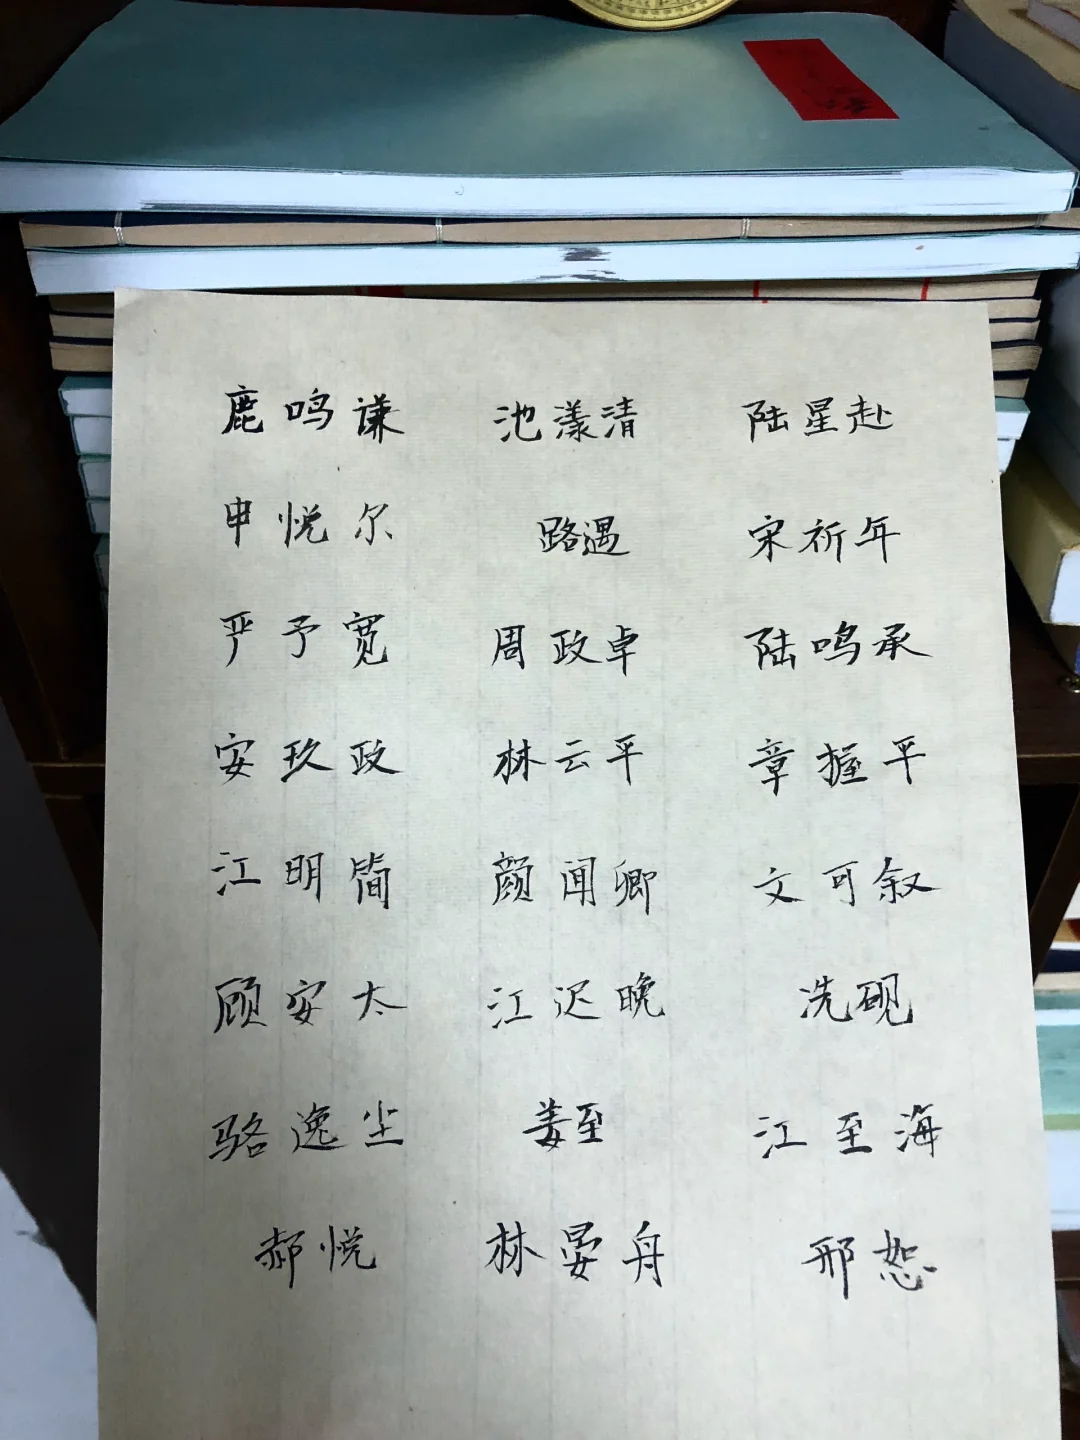 鹿鸣谦 池漾清 陆星赴
申悦尔 路遇 宋祈年
严予宽 周政卓 陆鸣承
安玖政 林云平 章握平
江明简 颜闻卿 文可叙
顾安太 江迟晚 冼砚
骆逸尘 姜至 江至海
郝悦 林晏舟 邢恕